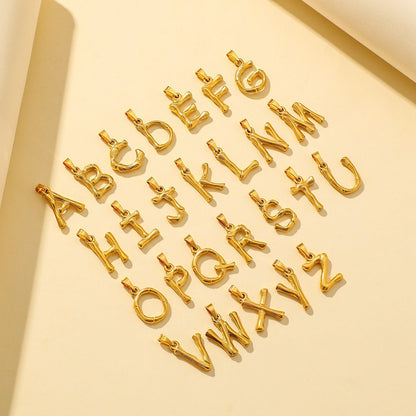 A B C D E F G
H I J K L N M
O P Q R S T U
V W X Y Z